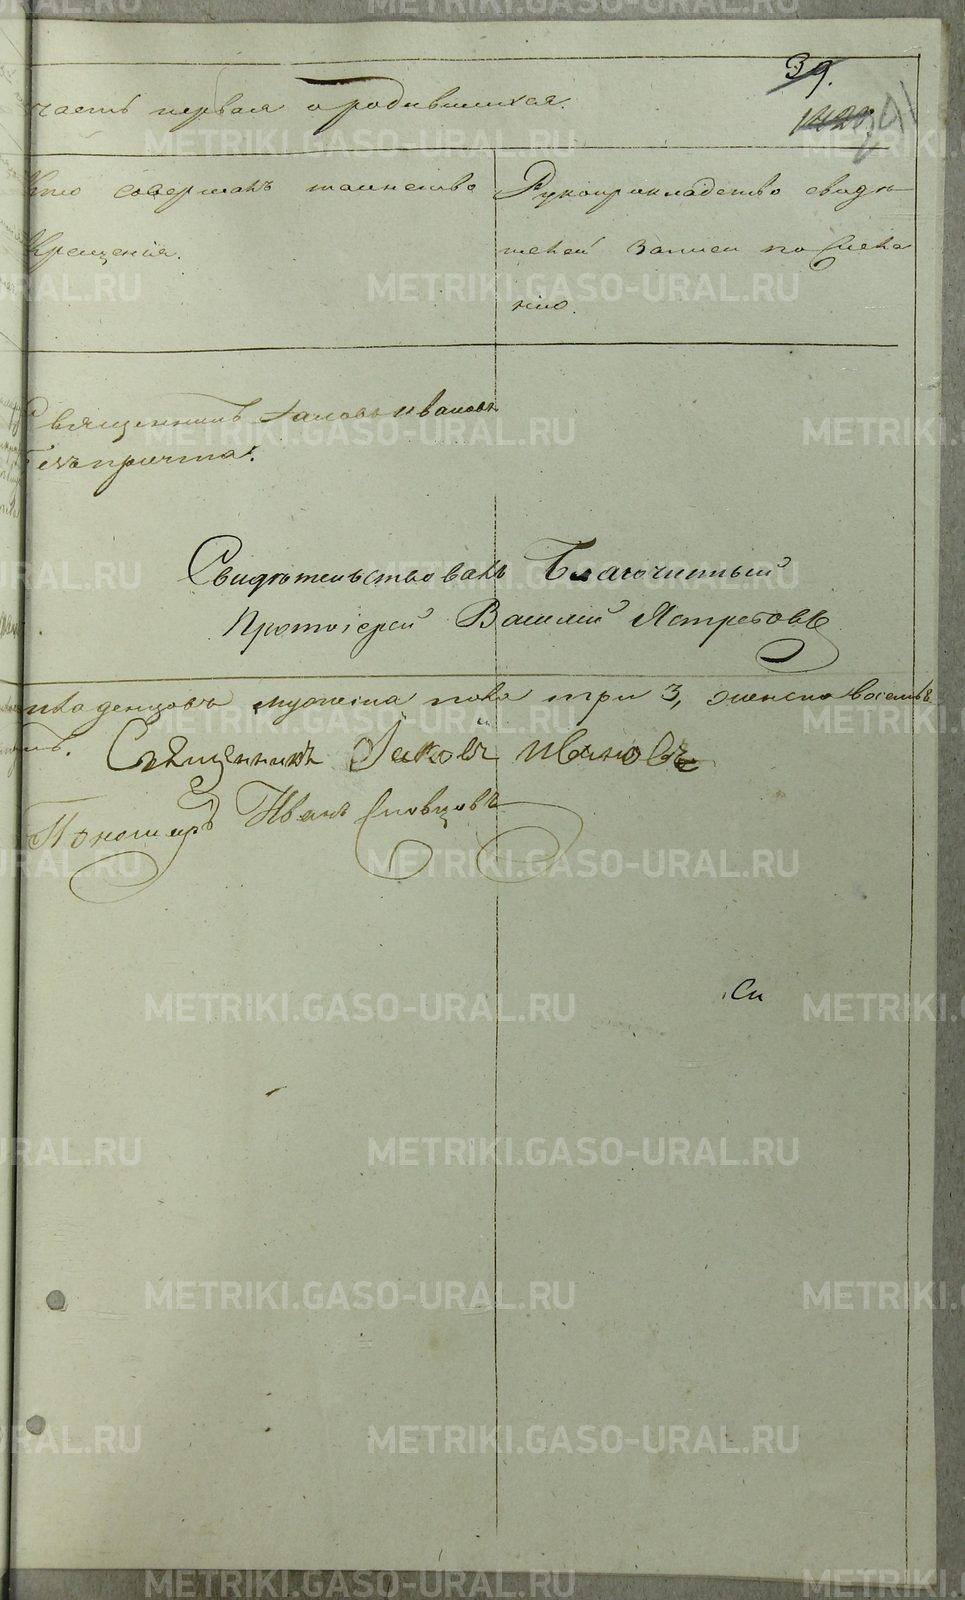 39.
часть первая о родившихся.
Кто совершалъ таинство
Крещенія.
Рукоприкладство свидѣ
телей записи по жела
нію.
Священникъ Іаковъ Ивановъ
безъ причта.
Свидѣтельствовалъ Благочинный
Протоіерей Василий Ястребовъ
младенцовъ мужеска пола три 3, женска восемь
Священникъ Іаковъ Ивановъ
Пономарь Иванъ Словцовъ
Си
METRIKI.GASO-URAL.RU